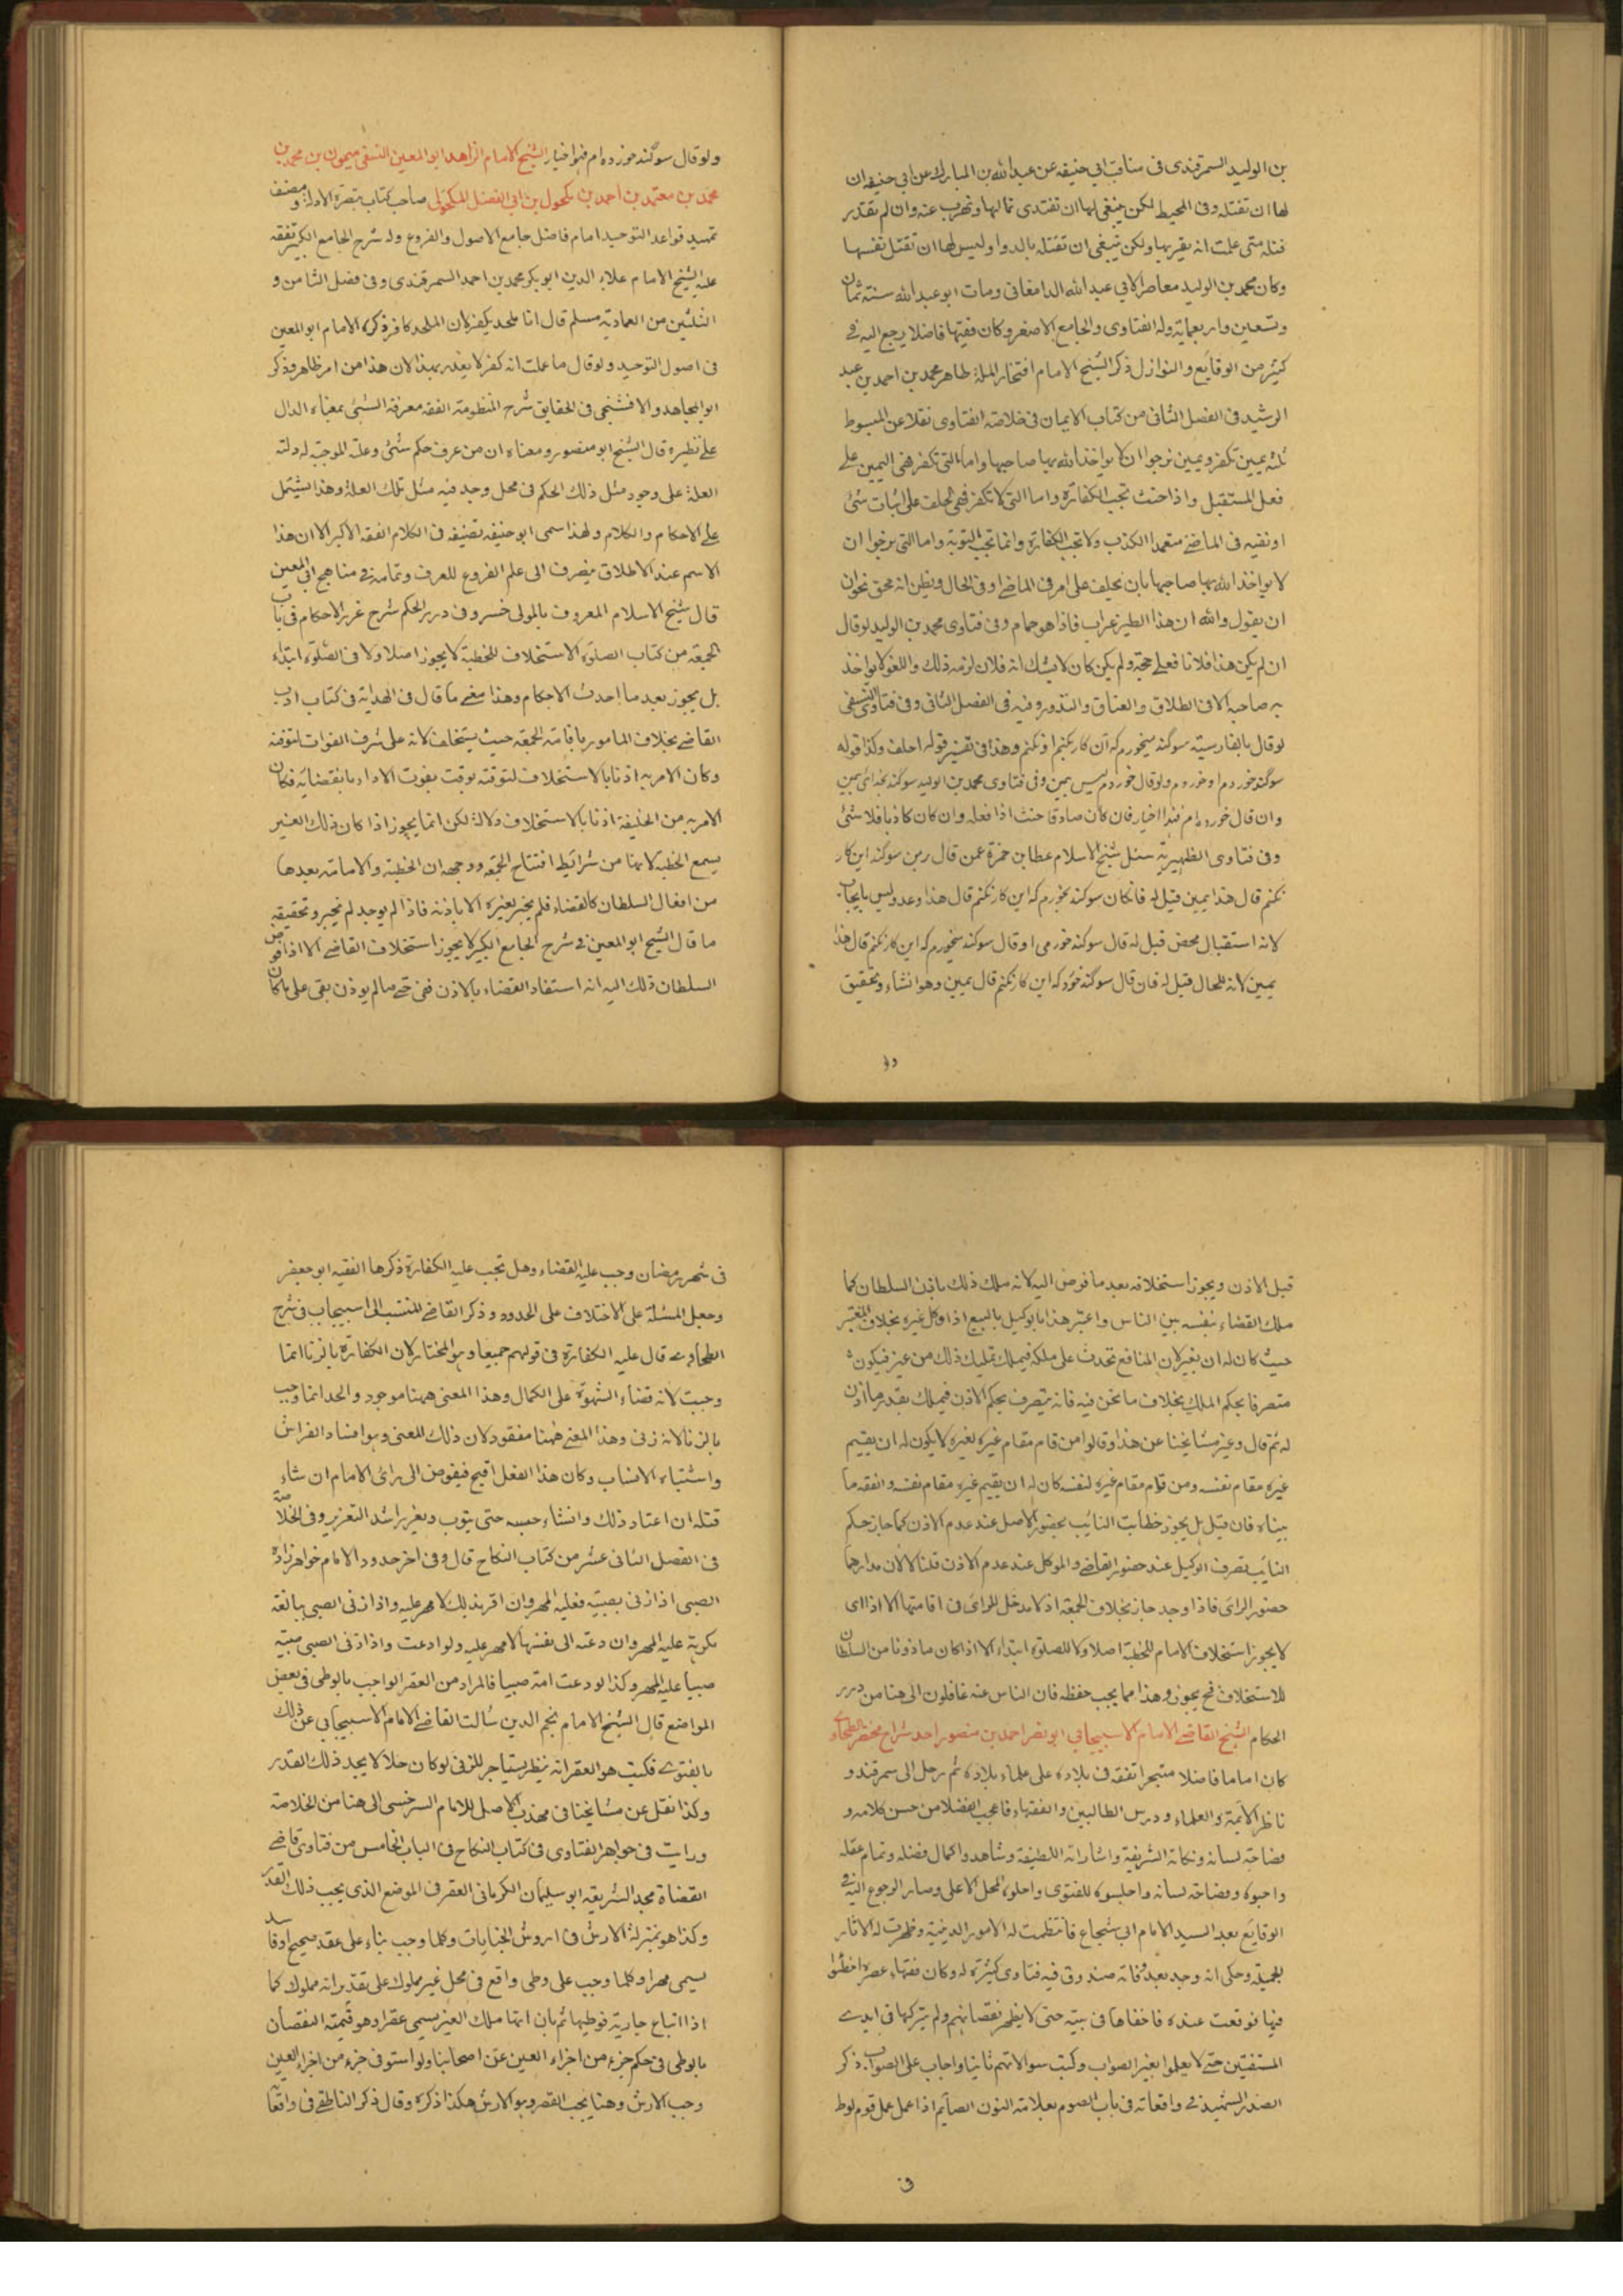 بن الوليد السمرقندى فى مناقب ابى حنيفه عن عبد الله بن المبارك عن ابى حنيفه ان
لها ان تقتله وفى المحيط لكن ينبغى لها ان تفتدى بمالها وتهرب عنه وان لم تقدر
قتله متى علمت انه يقربها ولكن ينبغى ان تقتله بالدوا وليس لها ان تقتل نفسها
وكان محمد بن الوليد معاصرا لابى عبد الله الدامغانى ومات ابو عبد الله سنة ثمان
وتسعين واربعماية وله الفتاوى والجامع الاصغر وكان فقيها فاضلا يرجع اليه فى
كثير من الوقايع والنوازل ذكر الشيخ الامام افتخار الملة طاهر محمد بن احمد بن عبد
الرشيد فى الفصل الثانى من كتاب الايمان فى خلاصة الفتاوى نقلا عن المبسوط
ثلثه يمين تكفر ويمين نرجوا ان لا يواخذ الله بها صاحبها واما التى تكفر فهى اليمين على
فعل المستقبل واذا حنث تجب الكفارة واما التى لا تكفر فهى الحلف على اثبات شئ
او نفيه فى الماضى متعمدا الكذب ولا تجب الكفارة وانما تجب التوبة واما التى نرجوا ان
لا يواخذ الله بها صاحبها بان يحلف على امر فى الماضى او فى الحال ويظن انه محق نحو ان
ان يقول والله ان هذا الطير غراب فاذا هو حمام وفى فتاوى محمد بن الوليد لو قال
ان لم يكن هذا فلانا فعلى حجة ولم يكن كان لا يشك انه فلان لزمه ذلك واللغو لا يواخذ
به صاحبه الا فى الطلاق والعتاق والنذور وفيه فى الفصل الثانى وفى فتاوى النسفى
لو قال بالفارسية سوگند ميخورم كه ان كار نكنم او بكنم وهذا فى تفسير قوله احلف وكذا قوله
سوگند خوردم او خوردم ولو قال خوردم ليس بيمين وفى فتاوى محمد بن الوليد سوگند بخداى يمين
وان قال خورده ام فهذا اخبار فان كان صادقا حنث اذا فعله وان كان كاذبا فلا شئ
وفى فتاوى الظهيرية سئل شيخ الاسلام عطا بن حمزة عمن قال سوگند اين كار
نكنم قال هذا يمين قيل له فان كان سوكند بخورم كه اين كار نكنم قال هذا وعد وليس بايجاب
لانه استقبال محض قيل له قال سوكند خورمى او قال سوكند ميخورم كه اين كار نكنم قال هذا
يمين لانه للحال قيل له فان قال سوگند خورد كه اين كار نكنم قال يمين وهو انشاء وتحقيق
ولو قال سوگند خورده ام فهو اخبار الشيخ الامام الزاهد ابو المعين النسفى ميمون بن محمد بن
محمد بن معتمد بن احمد بن مكحول بن ابى الفضل المكحولى صاحب كتاب تبصرة الادلة ومصنف
تمهيد قواعد التوحيد امام فاضل جامع الاصول والفروع وله شرح الجامع الكبير تفقه
عليه الشيخ الامام علاء الدين ابو بكر محمد بن احمد السمرقندى وفى فصل الثامن و
الثلثين من العمادية مسلم قال انا ملحد يكفر لان الملحد كافر ذكره الامام ابو المعين
فى اصول التوحيد ولو قال ما علمت انه كفر لا يعذر بهذا لان هذا من امر ظاهر وذكر
ابو المجاهد والافشنجى فى الحقايق شرح المنظومة الفقه معرفة الشئ بمعناه الدال
على نظيره قال الشيخ ابو منصور ومعناه ان من عرف حكم شئ وعلة الموجبة له دلته
العلة على وجود مثل ذلك الحكم فى محل وجد فيه مثل تلك العلة وهذا يشتمل
على الاحكام والكلام ولهذا سمى ابو حنيفه تصنيفه فى الكلام الفقه الاكبر الا ان هذا
الاسم عند الاطلاق ينصرف الى علم الفروع للعرف وتمامه فى مناهج ابى المعين
قال شيخ الاسلام المعروف بالمولى خسرو فى درر الحكم شرح غرر الاحكام فى باب
الجمعة من كتاب الصلوة الاستخلاف للخطبة لا يجوز اصلا ولا فى الصلوة ابتداء
بل يجوز بعد ما احدث الامام وهذا معنى ما قال فى الهداية فى كتاب ادب
القاضى بخلاف المامور باقامة الجمعة حيث يستخلف لانه على شرف الفوات لتوقته
وكان الامر به اذنا بالاستخلاف لتوقته بوقت يفوت الاداء بانقضايه فكان
الامر به من الخليفة اذنا بالاستخلاف دلالة لكن انما يجوز اذا كان ذلك الغير
يسمع الخطبة لانها من شرائط افتتاح الجمعه ووجهه ان الخطبة والامامة بعدها
من افعال السلطان كالقضاء فلم يجز لغيره الا باذنه فاذا لم يوجد لم يجز وتحقيقه
ما قال الشيخ ابو المعين فى شرح الجامع الكبير لا يجوز استخلاف القاضى الا اذا فوض
السلطان ذلك اليه انه استفاد القضاء بالاذن ففى حق ما لم يوذن بقى على ما كان
قبل الاذن ويجوز استخلافه بعد ما فوض اليه لانه ملك ذلك باذن السلطان كما
ملك القضاء بنفسه بين الناس واعتبر هذا بالوكيل بالبيع اذا وكل غيره بخلاف المعتبر
حيث كان له ان يعير لان المنافع تحدث على ملكه فيملك تمليك ذلك من غير فيكون
متصرفا بحكم الملك بخلاف ما نحن فيه فانه يتصرف بحكم الاذن فيملك بقدر ما اذن
له ثم قال وعبر مشايخنا عن هذا وقالوا من قام مقام غيره لغيره لا يكون له ان يقيم
غيره مقام نفسه ومن قام مقام غيره لنفسه كان له ان يقيم غيره مقام نفسه والفقه ما
بيناه فان قيل بل يجوز خطابت النائب بحضور الاصل عند عدم الاذن كما جاز حكم
النايب بتصرف الوكيل عند حضور القاضى والموكل عند عدم الاذن قلنا لا لان مدارهما
حضور الراى فاذا وجد جاز بخلاف الجمعة اذ لا مدخل للراى فى اقامتها الا اذا اى
لا يجوز استخلاف الامام للخطبة اصلا ولا للصلوة ابتداء الا اذا كان ماذونا من السلطان
للاستخلاف فح يجوز وهذا مما يجب حفظه فان الناس عنه غافلون الى هنا من درر
الحكام الشيخ القاضى الامام الاسبيجابى ابو نصر احمد بن منصور احد شراح مختصر الطحاوى
كان اماما فاضلا متبحرا تفقه فى بلاده على علماء بلاده ثم رحل الى سمرقند و
ناظر الائمة والعلماء ودرس الطالبين والفقهاء فاعجب الفضلا من حسن كلامه و
فصاحة لسانه ونكاته الشريفة واشاراته اللطيفة وشاهدوا كمال فضله وتمام عقله
واحبوه وفصاحة لسانه واجلسوه للفتوى واحلوه المحل الاعلى وصار الرجوع اليه فى
الوقايع بعد السيد الامام ابى شجاع فانتظمت له الامور الدينية وظهرت له الاثار
الجميلة وحكى انه وجد بعد وفاته صندوق فيه فتاوى كثيرة له وكان فقهاء عصره اخطئوا
فيها فوقعت عنده فاخفاها فى بيته حتى لا يظهر نقصانهم ولم يتركها فى ايدى
المستفتين حتى لا يعملوا بغير الصواب وكتب سوالاتهم ثانيا واجاب على الصواب ذكر
الصدر الشهيد فى واقعاته فى باب الصوم بعلامة النون الصايم اذا عمل عمل قوم لوط
فى شهر رمضان وجب عليه القضاء وهل تجب عليه الكفارة ذكرها الفقيه ابو جعفر
وجعل المسئلة على الاختلاف على الحدود وذكر القاضى المنتسب الى اسبيجاب فى شرح
الطحاوى قال عليه الكفارة فى قولهم جميعا وهو المختار لان الكفارة بالزنا انما
وجبت لانه قضاء الشهوة على الكمال وهذا المعنى ههنا موجود والحد انما وجب
بالزنا لانه زنى وهذا المعنى ههنا مفقود لان ذلك المعنى وهو افساد الفراش
واشتباه الانساب وكان هذا الفعل اقبح فيفوض الى راى الامام ان شاء
قتله ان اعتاد ذلك وان شاء حبسه حتى يتوب ويعزر اشد التعزير وفى الخلاصة
فى الفصل الثانى عشر من كتاب النكاح قال وفى اخر حدود الامام خواهرزاده
الصبى اذا زنى بصبية فعليه المهر وان اقر بذلك لا مهر عليه واذا زنى الصبى ببالغة
مكرهة عليه المهر وان دعته الى نفسها لا مهر عليه ولو ادعت واذا زنى الصبى صبية
صبيا عليه المهر وكذا لو دعت امة صبيا فالمراد من العقر الواجب بالوطى فى بعض
المواضع قال الشيخ الامام نجم الدين سالت القاضى الامام الاسبيجابى عن ذلك
بالفتوى فكتب هو العقر انه ينظر يستاجر للزنى لو كان حلالا يجد ذلك القدر
وكذا نقل عن مشايخنا فى مهذب الاصل للامام السرخسى الى هنا من الخلاصة
ورايت فى جواهر الفتاوى فى كتاب النكاح فى الباب الخامس من فتاوى قاضى
القضاة مجد الشريعة ابو سليمان الكرمانى العقر فى الموضع الذى يجب ذلك القدر
وكذا هو بمنزلة الارش فى اروش الجنايات وكلما وجب بناء على عقد صحيح او فاسد
يسمى مهرا وكلما وجب على وطى واقع فى محل غير مملوك على تقدير انه مملوك كما
اذا ابتاع جارية فوطيها ثم بان انها ملك الغير يسمى عقرا وهو قيمة النقصان
بالوطى فى حكم جزء من اجزاء العين عن اصحابنا ولو استوفى جزء من اجزاء العين
وجب الارش وهنا يجب العقر وهو الارش هكذا ذكره وقال ذكر الناطفى فى واقعا